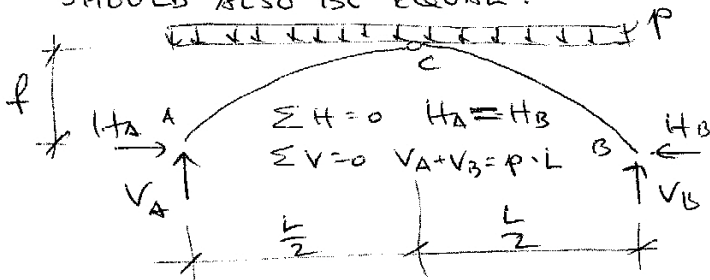 SHOULD ALSO BE EQUAL.
p
C
f
HA A ΣH=0 HA=HB HB
VA ΣV=0 VA+VB=p·L B VB
L/2 L/2